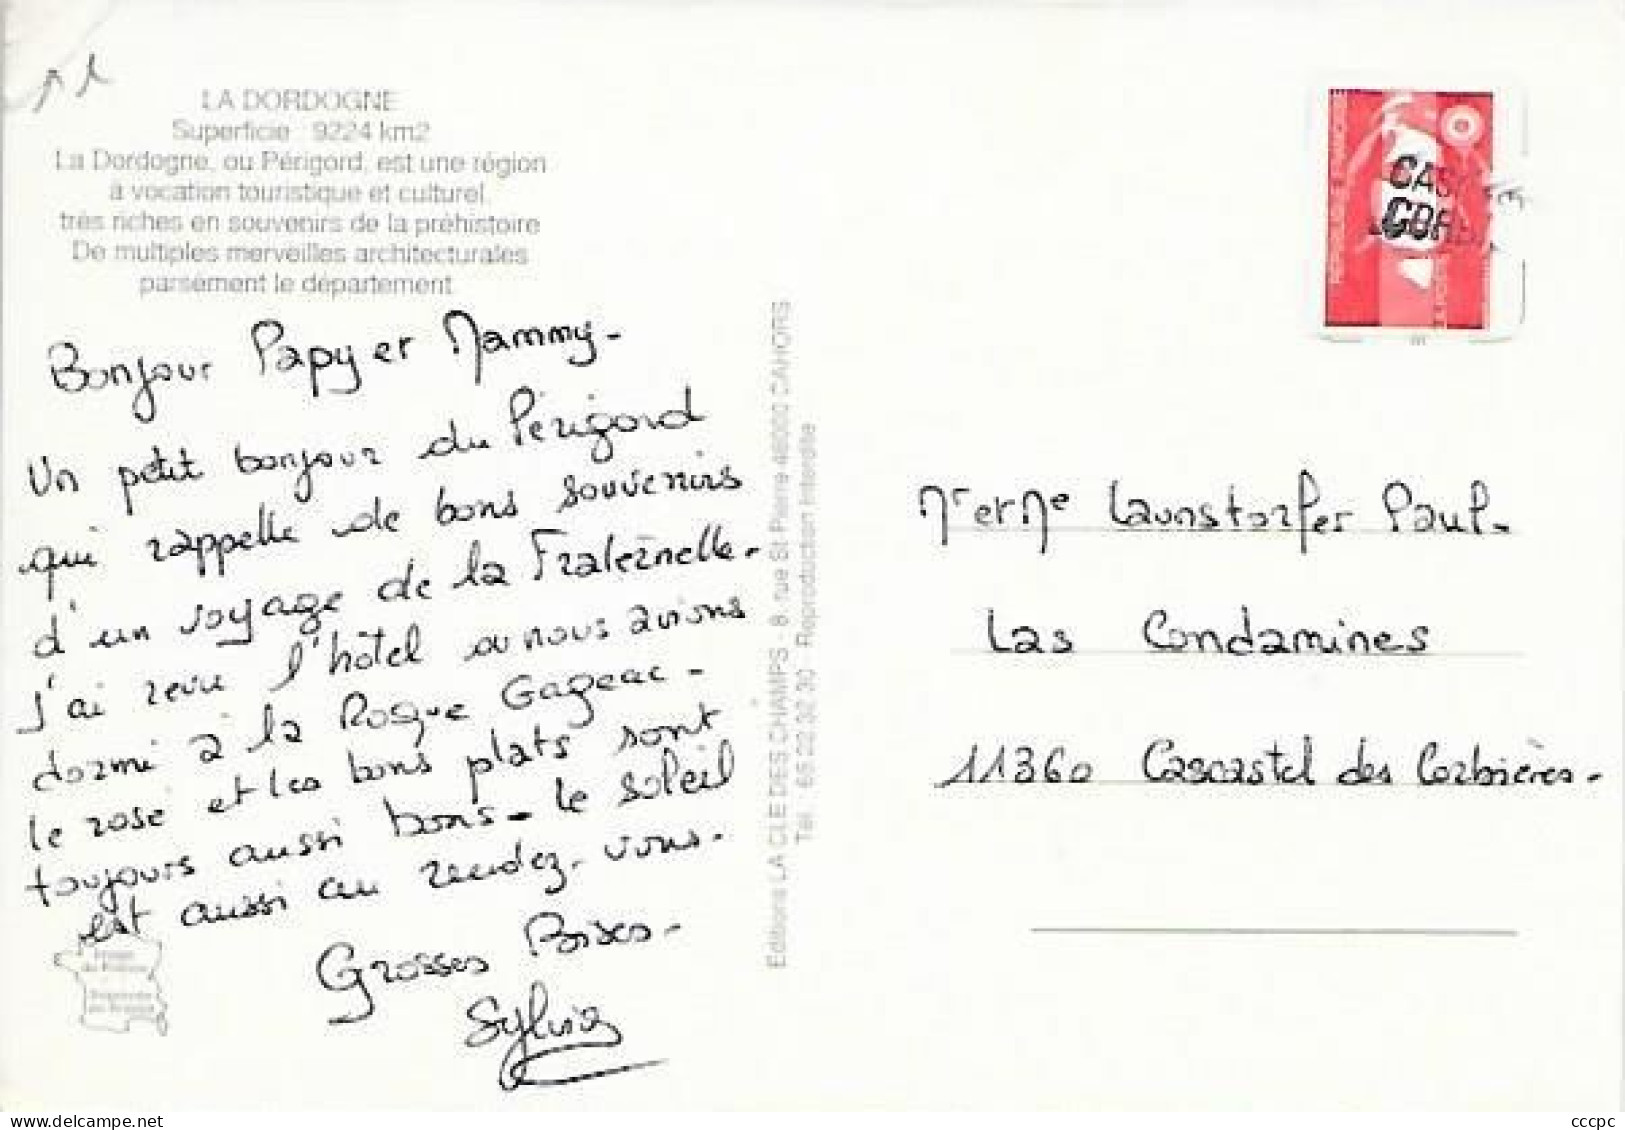 LA DORDOGNE
Superficie : 9224 km2
La Dordogne, ou Périgord, est une région
à vocation touristique et culturel,
très riches en souvenirs de la préhistoire
De multiples merveilles architecturales
parsèment le département
Bonjour Papy et Mammy.
Un petit bonjour du Périgord
qui rappelle de bons souvenirs
d'un voyage de la Fraternelle.
J'ai revu l'hôtel ou nous avions
dormi à la Roque Gageac.
le rosé et les bons plats sont
toujours aussi bons. le soleil
est aussi au rendez-vous.
Grosses Bises.
Sylvie
Editions LA CLE DES CHAMPS - 8, rue St Pierre 46000 CAHORS
Tél. 65.22.32.30 Reproduction Interdite
Mr et Me Launstorfer Paul.
Las Condamines
11360 Cascastel des Corbières.
cccpc